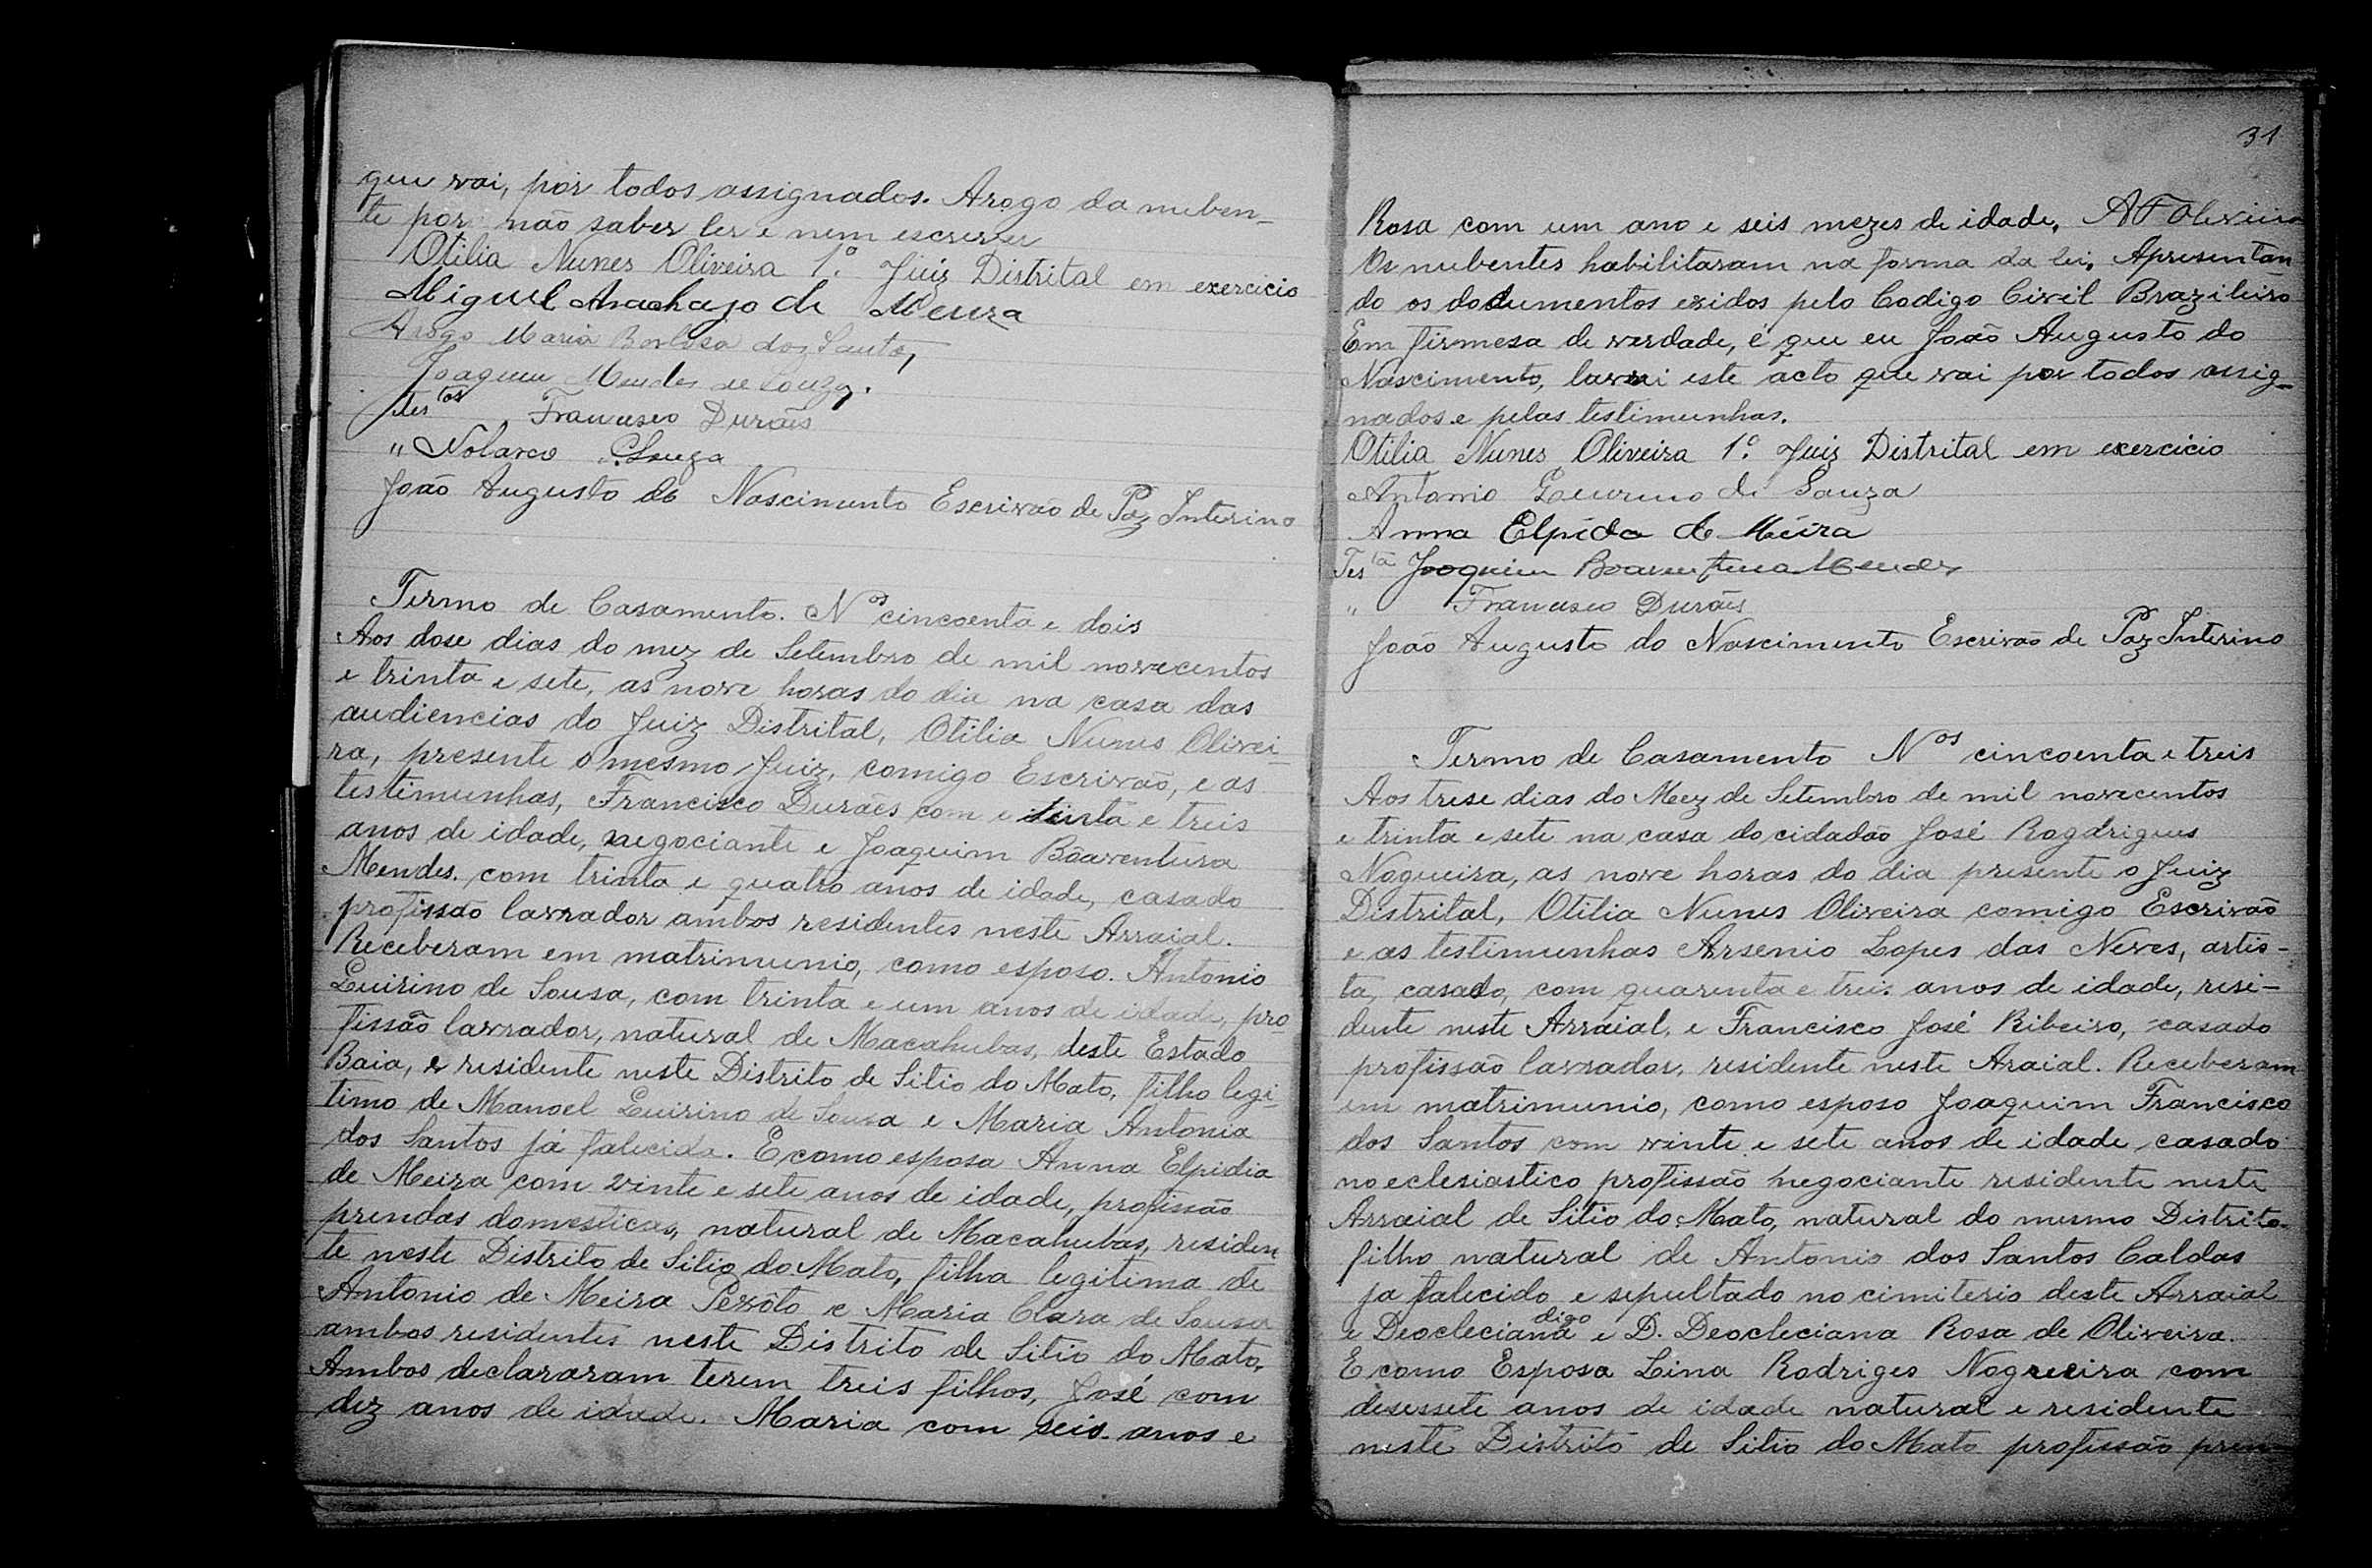 que vai, por todos assignados. Arogo da nuben-
te por não saber ler e nem escrever
Otilia Nunes Oliveira 1º. Juiz Distrital em exercicio
Miguel de
Arogo Maria Barbosa dos Santos,
Joaquim Mendes de Souza.
tes tas Francisco Durães
" Nolasco Souza
João Augusto do Nascimento Escrivão de Paz Interino
Termo de Casamento. Nos cincoenta e dois
Aos dose dias do mez de Setembro de mil novecentos
e trinta e sete, as nove horas do dia na casa das
audiencias do Juiz Distrital, Otilia Nunes Olivei-
ra, presente o mesmo Juiz, comigo Escrivão, e as
testimunhas, Francisco Durães com e e treis
anos de idade, negociante e Joaquim Bôaventura
Mendes. com trinta e quatro anos de idade, casado
profissão lavrador ambos residentes neste Arraial.
Receberam em matrimunio, como esposo. Antonio
Quirino de Sousa, com trinta e um anos de idade, pro
fissão lavrador, natural de Macahubas, deste Estado
Baia, e residente neste Distrito de Sitio do Mato, filho legi-
timo de Manoel Quirino de Sousa e Maria Antonia
dos Santos já falecida. E como esposa Anna Elpidia
de Meira com vinte e sete anos de idade, profissão
prendas domesticas, natural de Macahubas, residen
te neste Distrito de Sitio do Mato, filha legitima de
Antonio de Meira e Maria Clara de Sousa
ambos residentes neste Distrito de Sitio do Mato,
Ambos declararam terem treis filhos, José com
dez anos de idade. Maria com seis anos e
31
Rosa com um ano e seis mezes de idade. A F Oliveira
Os nubentes habilitaram na forma da lei. Apresentan
do os dodumentos exidos pelo Codigo Civil Brazileiro
Em firmesa de verdade, é que eu João Augusto do
Nascimento, lavrai este acto que vai por todos assig-
nados e pelas testimunhas.
Otilia Nunes Oliveira 1º. Juiz Distrital em exercicio
Antonio de Souza
Anna Elpida de Meira
Testa Joaquim Boaventura Mendes
" Francisco Durães
João Augusto do Nascimento Escrivão de Paz Interino
Termo de Casamento Nos cincoenta e treis
Aos trese dias do Mez de Setembro de mil novecentos
e trinta e sete na casa do cidadão José Rogdrigues
Nogueira, as nove horas do dia presente o Juiz
Distrital, Otilia Nunes Oliveira comigo Escrivão
e as testimunhas Arsenio Lopes das Neves, artis-
ta, casado, com quarenta e treis anos de idade, resi-
dente neste Arraial, e Francisco José Ribeiro, casado
profissão lavrador, residente neste Araial. Receberam
em matrimunio, como esposo Joaquim Francisco
dos Santos com vinte e sete anos de idade casado
no eclesiastico profissão negociante residente neste
Arraial de Sitio do Mato, natural do mesmo Distrito
filho natural de Antonio dos Santos Caldas
ja falecido e sepultado no cimiterio deste Arraial
e Deocleciana digo e D. Deocleciana Rosa de Oliveira.
E como Esposa Lina Rodriges Nogueira com
desessete anos de idade natural e residente
neste Distrito de Sitio do Mato profissão pren-